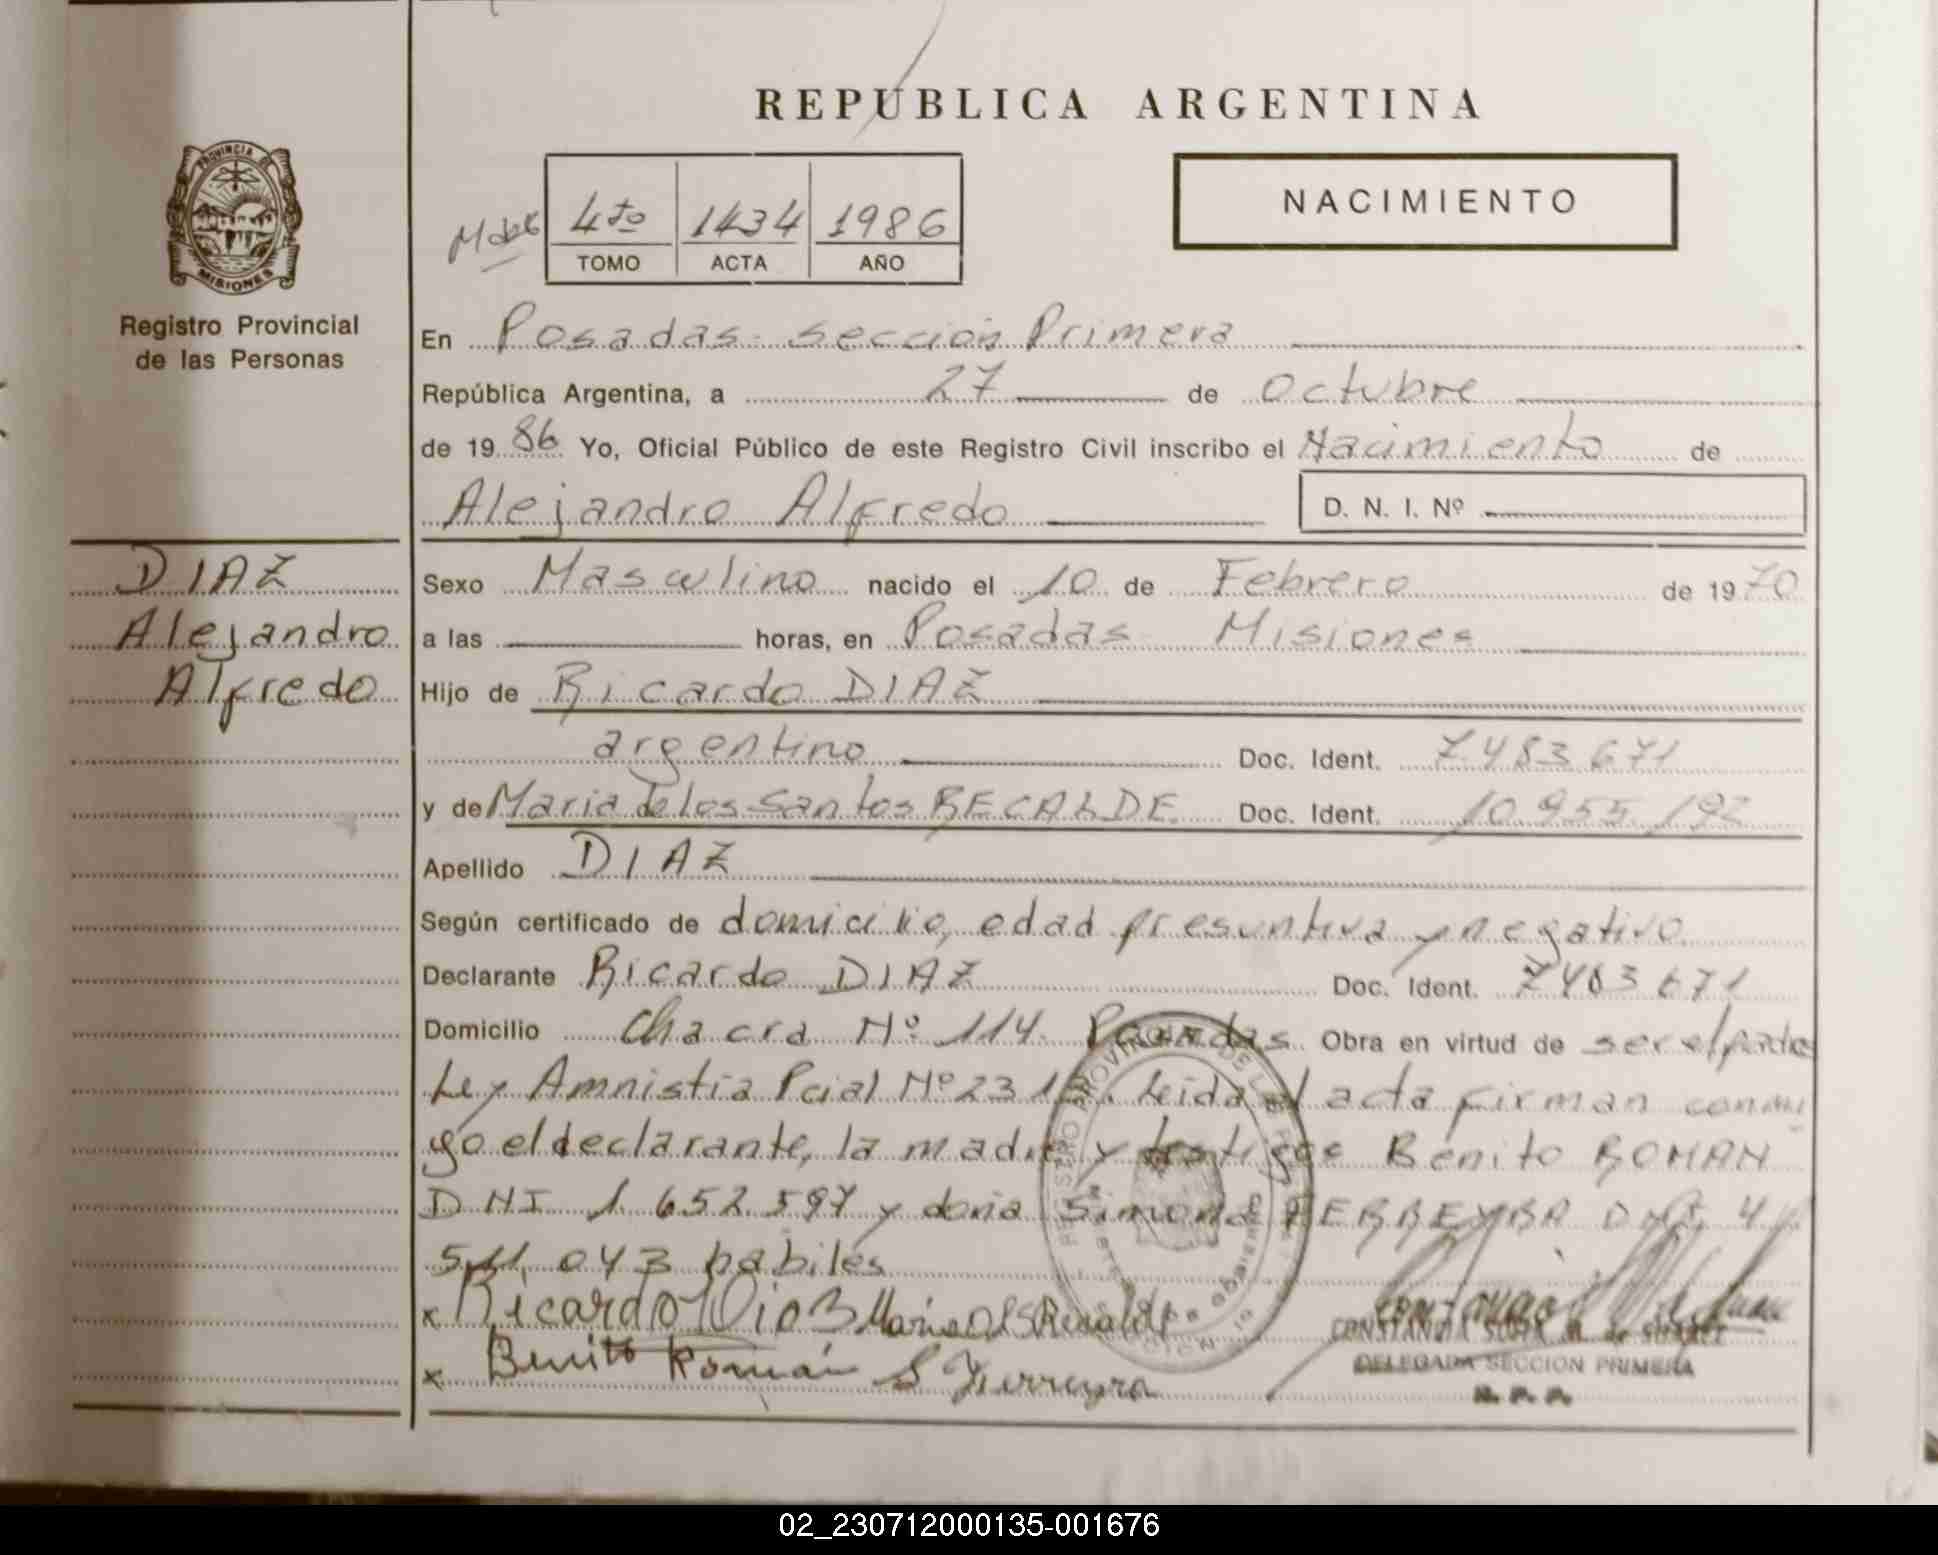 REPUBLICA ARGENTINA
PROVINCIA DE
MISIONES
Registro Provincial
de las Personas
4to 1434 1986
TOMO ACTA AÑO
NACIMIENTO
En Posadas sección Primera
República Argentina, a 27 de Octubre
de 1986 Yo, Oficial Público de este Registro Civil inscribo el Nacimiento de
Alejandro Alfredo D. N. I. Nº
DIAZ
Alejandro
Alfredo
Sexo Masculino nacido el 10 de Febrero de 1970
a las horas, en Posadas Misiones
Hijo de Ricardo DIAZ
argentino Doc. Ident. 7483671
y de Maria de los Santos RECALDE Doc. Ident. 10.955.192
Apellido DIAZ
Según certificado de domicilio, edad presuntiva y negativo
Declarante Ricardo DIAZ Doc. Ident. 7483671
Domicilio Chacra Nº 114 Posadas Obra en virtud de ser el padre
Ley Amnistia Pcial Nº 23 Leida el acta firman conmi
go el declarante, la madre y testigos Benito ROMAN
DNI 1.652.597 y doña Simona FERREYRA 4
511.043 habiles
x Ricardo Diaz
x Benito Román S Ferreyra
DELEGADA SECCION PRIMERA
R. P. P.
02_230712000135-001676